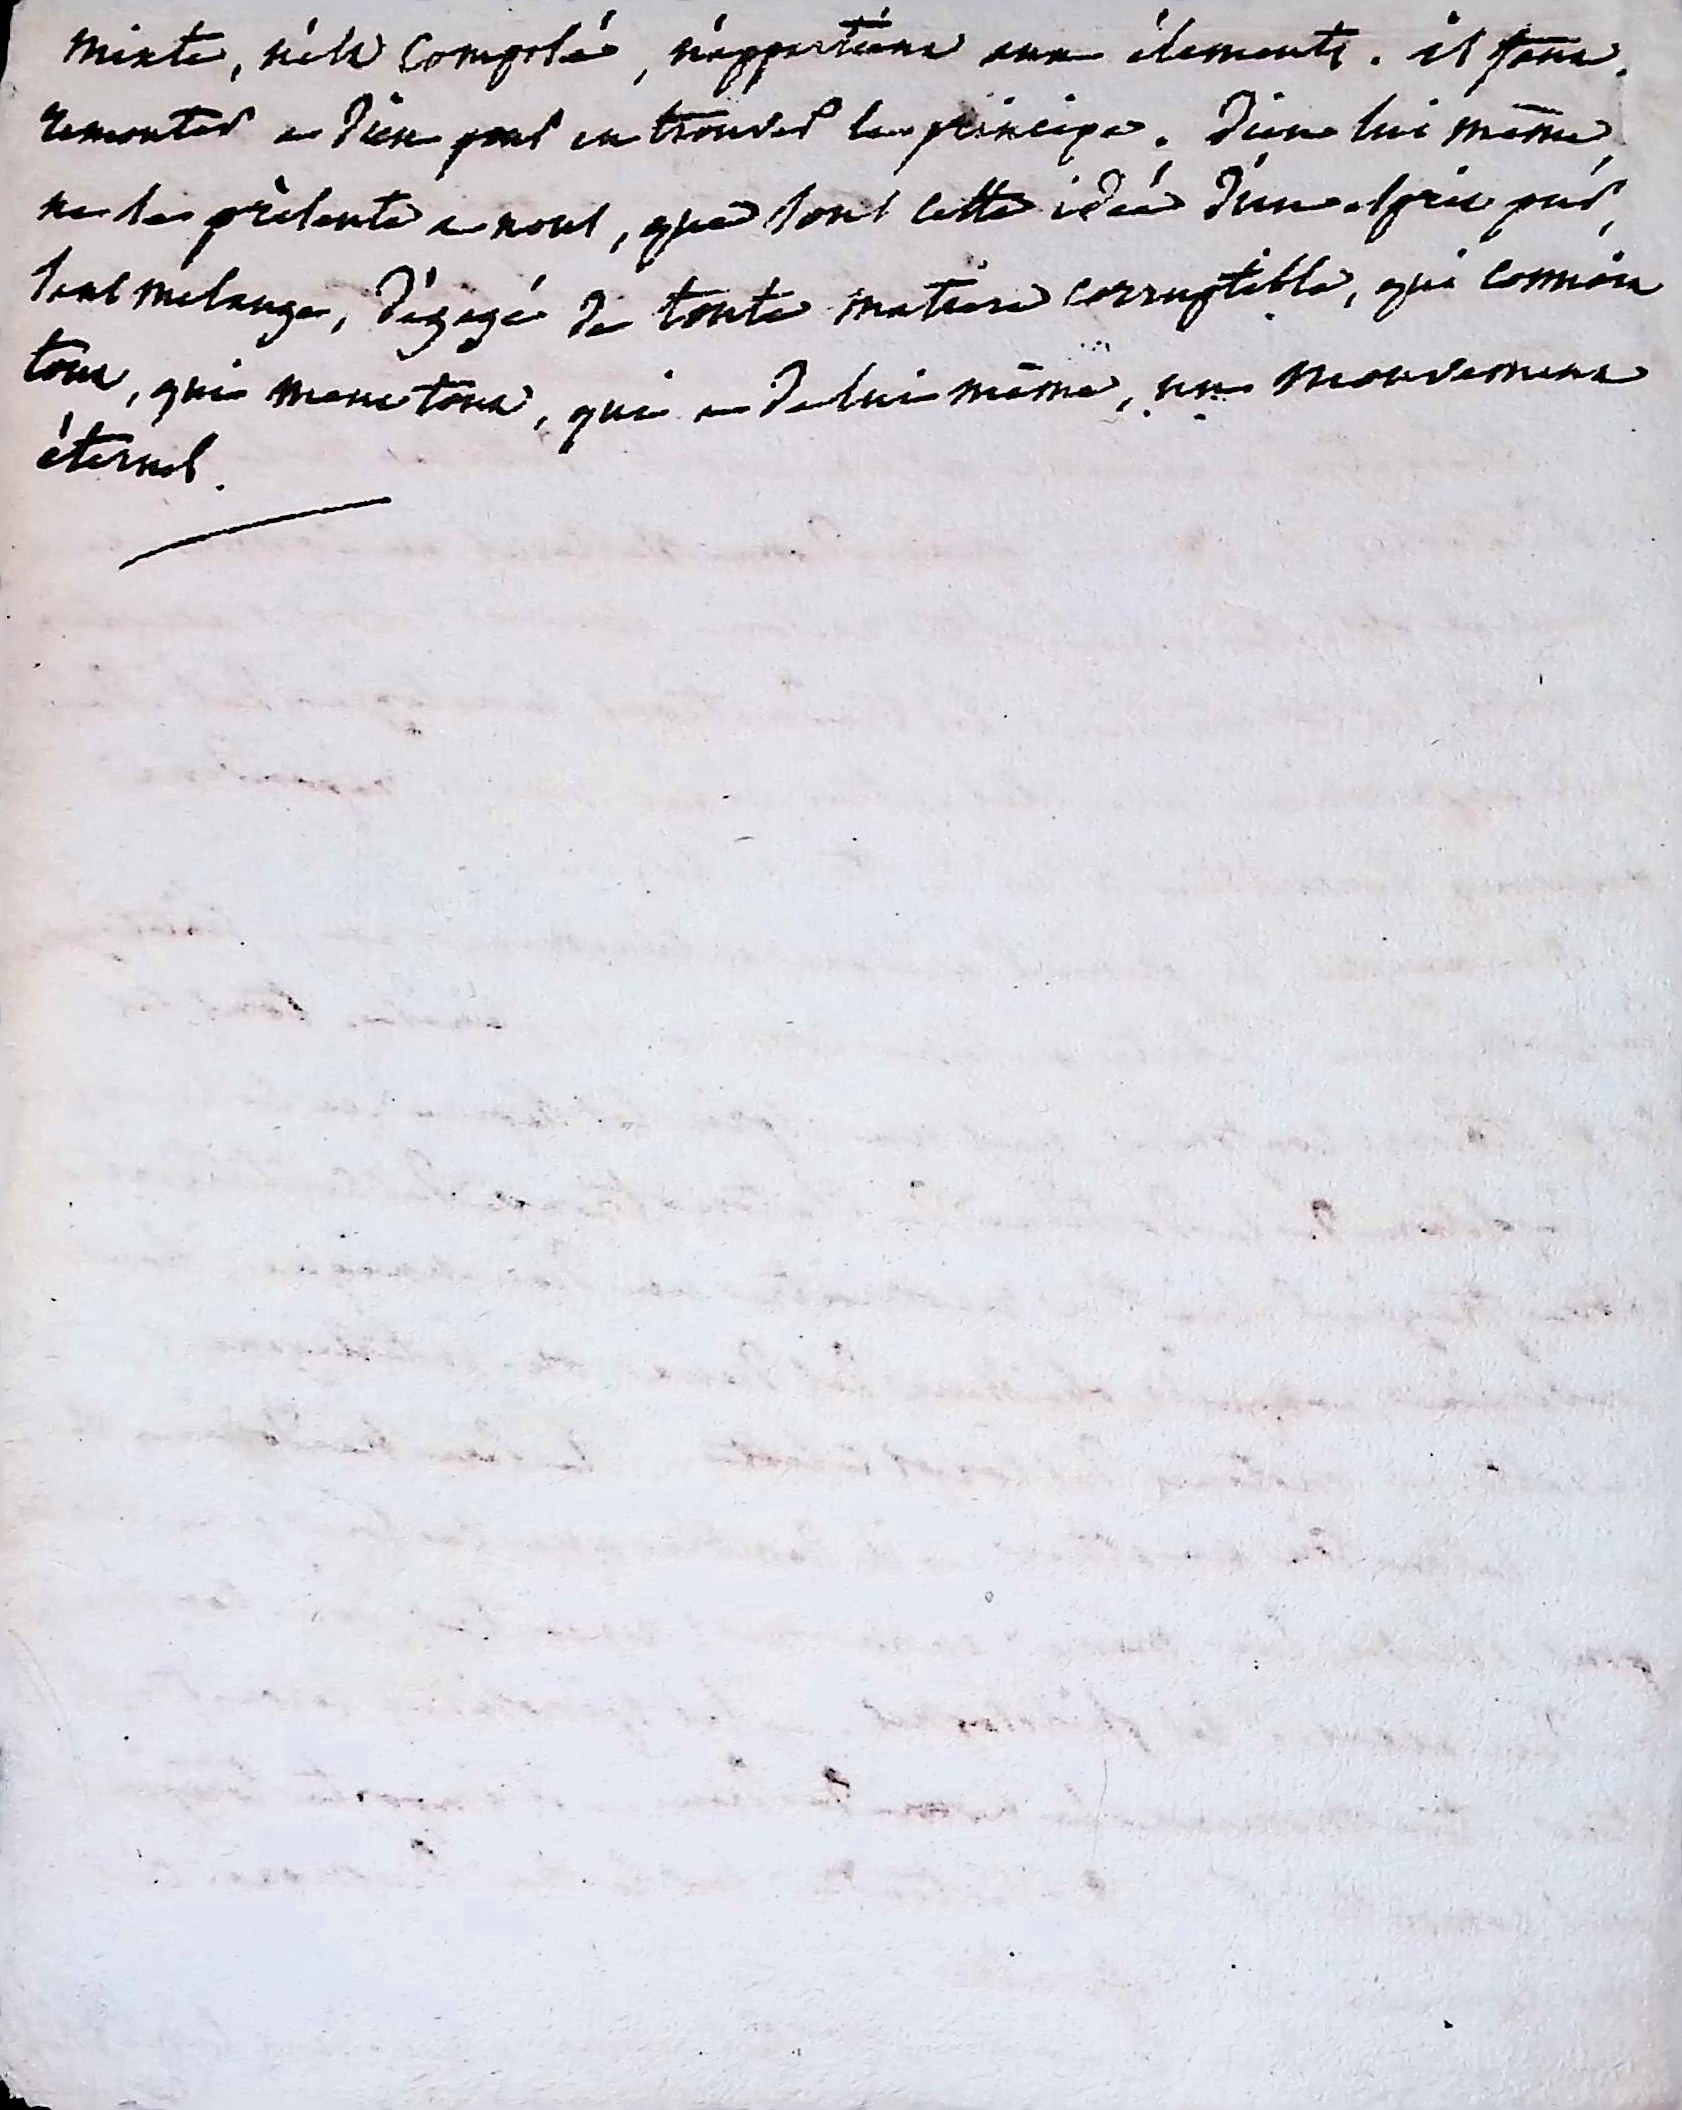 mixte, n'est composé, n'appartient aux élements. il faut
remonter a Dieu pour en trouver le principe. Dieu lui même,
ne se présente a nous, que sous cette idée d'un esprit pur,
sans mélange, dégagé de toute matiére corruptible, qui connoit
tout, qui meut tout, qui a de lui même, un mouvement
éternel.